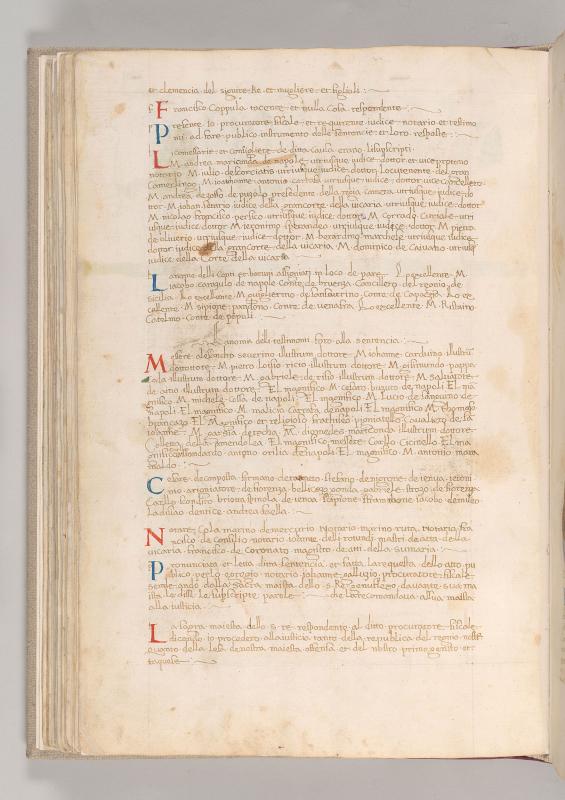 et clemencia del signire Re et mugliere et figlioli :
Francisco Coppula tacente et nulla cosa respondente
Presente io procuratore fiscale et requirente iudice notario et testimo
nii ad fare publico instrumento delle sentencie et loro resposte :
Li comessarie et consigliere de ditta causa erano li subscripti
M. andrea mariconda de napole utriusque iudice dottor et vice protono
notario M. iulio de scorciatis utriusque iudice dottor Locutenente del gran
Camerlingo M. iohanne antonio carrafa utriusque iudice dottor vice cancellero
M. andrea presedente della regia camera utriusque iudice do
tor M. iohan iudice della grancorte della vicaria utriusque iudice dottor
M. nicolao francisco persico utriusque iudice dottor M. corrado curiale utri
usque iudice dottor M. ieronimo sperandeo utriusque iudice dottor M. pietro
de oliverio utriusque iudice dottor M. berardino marchese utriusque iudice
dottor iudice della grancorte della vicaria M. dominico de caivano utriusque
iudice della Corte della vicaria
La nome delli Conti et baruni assignati in loco de pare Lo excellente M.
iacobo caragulo de napole conte de bruenza Cancillero del regno de
sicilia Lo excellente M. guglielmo de sanseverino conte de Capacza Lo ex
cellente M. sipione pandono conte de venafra Lo excellente M. Restaino
Cantelmo conte de populi
La nomi delli testimonii foro alla sentencia
Messere alexandro severino illustrum dottore M. iohanne carduino illustru
dottottore M. pietro loisio ricio illustrum dottore M. gismundo pappa
coda illustrum dottore M. gabriele de illustrum dottore M. salvatore
de illustrum dottore El magnifico M. cesaro buzuto de napoli El ma
gnifico M. michele cossa de napoli El magnifico M. Lucio de sangineto de
napoli El magnifico M. malicia carrafa de napoli El magnifico M. thomaso
brancazo El magnifico et religioso frathiseo pignatello cavaliero de sa
iohanne M. garsia de M. diomedes mariconda illustrum dottore
Colletta della amendolea El magnifico messere Carlo Cicinello El ma
gnifico antonio orilia de napoli El magnifico M. antonio mara
maldo
Cesare de composta firmano de stefano de iorgore de ienua ieroni
mo de fiorenza bellicozo gabriele strozo de fiorenza
Carllo spinola de ienoa scipione iacobo de mileo
Ladislao dentice andrea faella
Notare Cola marino de mercurio Notario marino ruta Notaria fra
ncisco de consilio notario ioanne delli rotundi mastri de atta della
vicaria francisco de coronato magistro de atti della sumaria
Pronunciata et letta ditta sentencia et fatta la requesta dello atto pu
blico per lo egregio notario iohanne galluzio procuratore fiscale
se ne ando dalla sacra maiesta dello S. Re et genuflexo davante sua ma
ista le disse le subscripte parole che la recomandava a sua maiesta
alla iusticia
La sagra maiesta dello s. re respondente al ditto procuratore fiscale
dicendo io procedero alla iusticia tanto della republica del regno nostro
quanto della lesa de nostra maiesta offensa et del nostro primogenito et
taquele